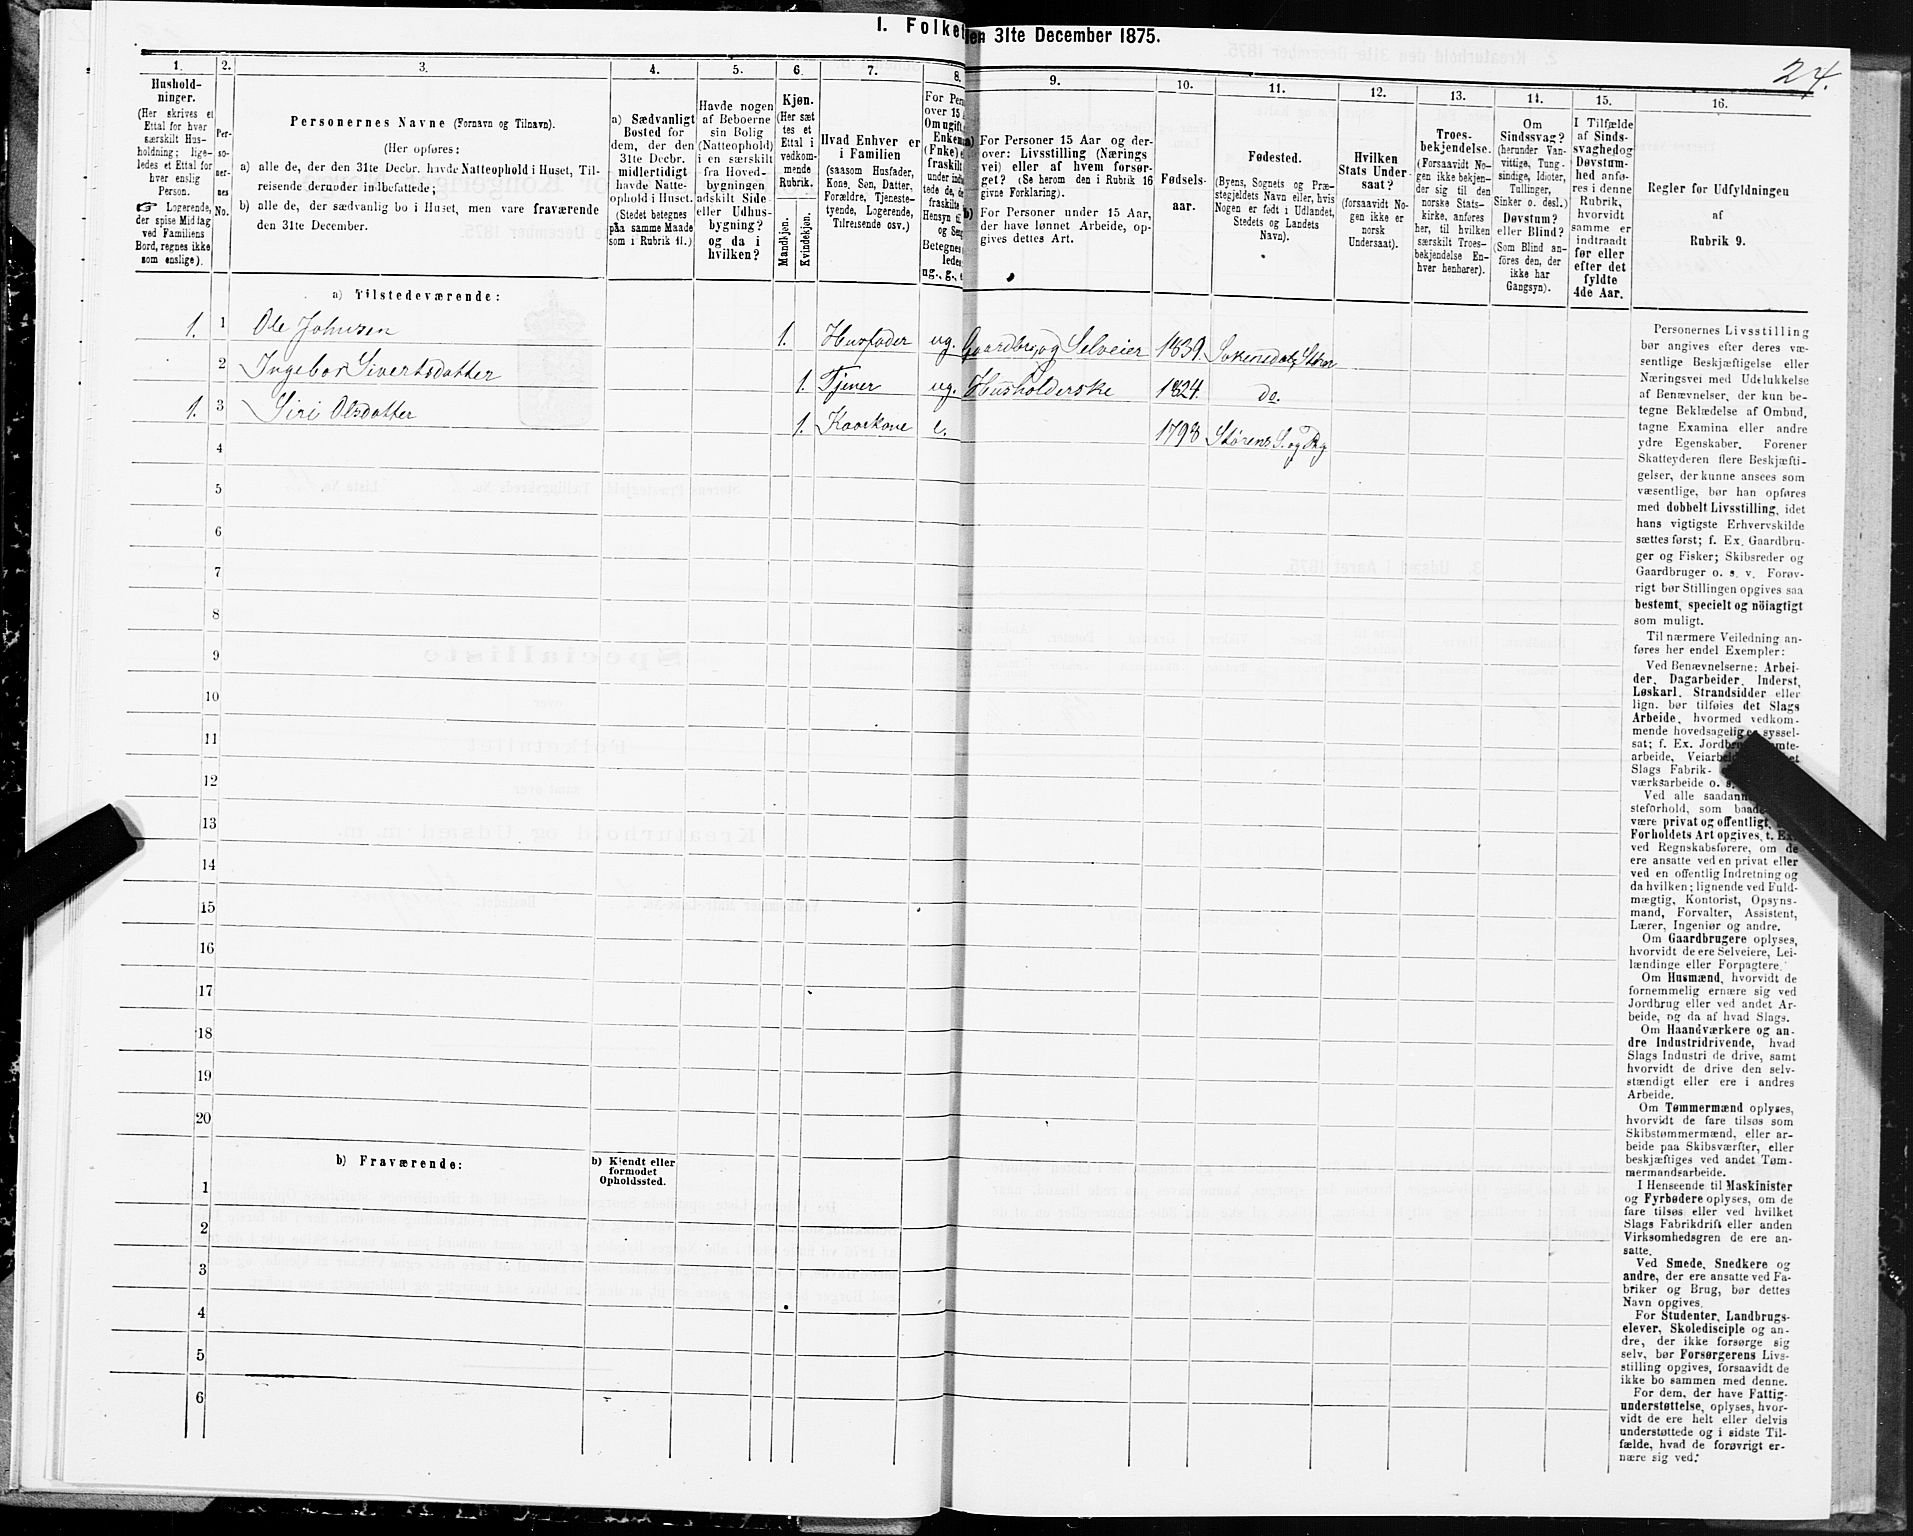 I. Folket
en 31te December 1875.
24.
1.
2.
3.
4.
5.
6.
7.
8.
9.
10.
11.
12.
13.
14.
15.
16.
Hushold-
ninger.
(Her skrives et
Ettal for hver
særskilt Hus-
holdning; lige-
ledes et Ettal for
hver enslig
Person.
☞ Logerende,
der spise Middag
ved Familiens
Bord, regnes ikke
som enslige).
Per-
so-
ner-
nes
No.
Personernes Navne (Fornavn og Tilnavn).
(Her opføres:
a) alle de, der den 31te Decbr. havde Natteophold i Huset, Til-
reisende derunder indbefattede;
b) alle de, der sædvanlig bo i Huset, men vare fraværende
den 31te December.
a) Sædvanligt
Bosted for
dem, der den
31te Decbr.
midlertidigt
havde Natte-
ophold i Huset.
(Stedet betegnes
paa samme Maade
som i Rubrik 11.)
Havde nogen
af Beboerne
sin Bolig
(Natteophold)
i en særskilt
fra Hoved-
bygningen
adskilt Side
eller Udhus-
bygning?
og da i
hvilken?
Kjøn.
(Her sæt
tes et
Ettal i
vedkom-
mende
Rubrik.
Mandkjøn.
Kvindekjøn.
Hvad Enhver er
i Familien
(saasom Husfader,
Kone, Søn, Datter,
Forældre, Tjeneste-
tyende, Logerende,
Tilreisende osv.)
For Pers
over 15
Om ugift,
Enkem
(Fnke) e
fraskilt
under indta
tede de, de
fraskilte
Hensyn til
og Seng
Betegnes
ledes
ug., g., e.
a) For Personer 15 Aar og der-
over: Livsstilling (Nærings
vei) eller af hvem forsør-
get? (Se herom den i Rubrik 16
givne Forklaring).
b) For Personer under 15 Aar,
der have lønnet Arbeide, op-
gives dettes Art.
Fødsels-
aar.
Fødested.
(Byens, Sognets og Præ-
stegjeldets Navn eller, hvis
Nogen er født i Udlandet,
Stedets og Landets
Navn).
Hvilken
Stats Under-
saat?
(forsaavidt No-
gen ikke er
norsk
Undersaat).
Troes-
bekjendelse.
(Forsaavidt No-
gen ikke bekjen-
der sig til den
norske Stats-
kirke, anføres
her, til hvilken
særskilt Troes-
bekjendelse En-
hver henhører).
Om
Sindssvag?
(herunder Van-
vittige, Tung-
sindige, Idioter,
Tullinger,
Sinker o. desl.)
Døvstum?
eller Blind?
(Som Blind an-
føres den, der
ikke har
Gangsyn).
I Tilfælde
af Sinds-
svaghed og
Døvstum-
hed anfø-
res i denne
Rubrik,
hvorvidt
samme er
indtraadt
før eller
efter det
fyldte
4de Aar.
Regler for Udfyldningen
af
Rubrik 9.
a) Tilstedeværende:
1. 1 Ole Johnsen 1. Husfader ug. Gaardbr. og Selveier 1839. Soknedal, Stør
2 Ingebor Sivertsdatter 1. Tjener ug. Husholderske 1824. do.
1. 3 Siri Olsdatter 1. Kaarkone e. 1798 Størens S. og Prg
4
5
6
7
8
9
10
11
12
13
14
15
16
17
18
19
20
b) Fraværende:
b) Kjendt eller
formodet
Opholdssted.
1
2
3
4
5
6
Personernes Livsstilling
bør angives efter deres væ-
sentlige Beskjæftigelse eller
Næringsvei med Udelukkelse
af Benævnelser, der kun be-
tegne Beklædelse af Ombud,
tagne Examina eller andre
ydre Egenskaber. Forener
Skatteyderen flere Beskjæfti-
gelser, der kunne ansees som
væsentlige, bør han opføres
med dobbelt Livsstilling, idet
hans vigtigste Erhvervskilde
sættes først; f. Ex. Gaardbru-
ger og Fisker; Skibsreder og
Gaardbruger o. s. v. Forøv-
rigt bør Stillingen opgives saa
bestemt, specielt og nöiagtigt
som muligt.
Til nærmere Veiledning an-
føres her endel Exempler:
Ved Benævnelserne: Arbei-
der, Dagarbeider, Inderst,
Løskarl, Strandsidder eller
lign. bør tilføies det Slags
Arbeide, hvormed vedkom-
mende hovedsagelig er syssel-
sat; f. Ex. Jordbr
arbeide, Veiarb
Slags Fabrik-
værksarbeide o. s.
Ved alle saadan
steforhold, som baade
være privat og offentligt,
Forholdets Art opgives, t. Ex.
ved Regnskabsførere, om de
ere ansatte ved en privat eller
ved en offentlig Indretning og
da hvilken; lignende ved Fuld-
mægtig, Kontorist, Opsyns-
mand, Forvalter, Assistent,
Lærer, Ingeniør og andre.
Om Gaardbrugere oplyses,
hvorvidt de ere Selveiere, Lei-
lændinge eller Forpagtere.
Om Husmænd, hvorvidt de
fornemmelig ernære sig ved
Jordbrug eller ved andet Ar-
beide, og da af hvad Slags.
Om Haandværkere og an-
dre Industridrivende, hvad
Slags Industri de drive, samt
hvorvidt de drive den selv-
stændigt eller ere i andres
Arbeide.
Om Tømmermænd oplyses,
hvorvidt de fare tilsøs som
Skibstømmermænd, eller ar-
beide paa Skibsværfter, eller
beskjæftiges ved andet Tøm-
mermandsarbeide.
I Henseende til Maskinister
og Fyrbødere oplyses, om de
fare tilsøs eller ved hvilket
Slags Fabrikdrift eller anden
Virksomhedsgren de ere an-
satte.
Ved Smede, Snedkere og
andre, der ere ansatte ved Fa-
briker og Brug, bør dettes
Navn opgives.
For Studenter, Landbrugs-
elever, Skoledisciple og an-
dre, der ikke forsørge sig
selv, bør Forsørgerens Livs-
stilling opgives, forsaavidt de
ikke bo sammen med denne.
For dem, der have Fattig-
understøttelse, oplyses, hvor-
vidt de ere helt eller delvis
understøttede og i sidste Til-
fælde, hvad de forøvrigt er-
nære sig ved.